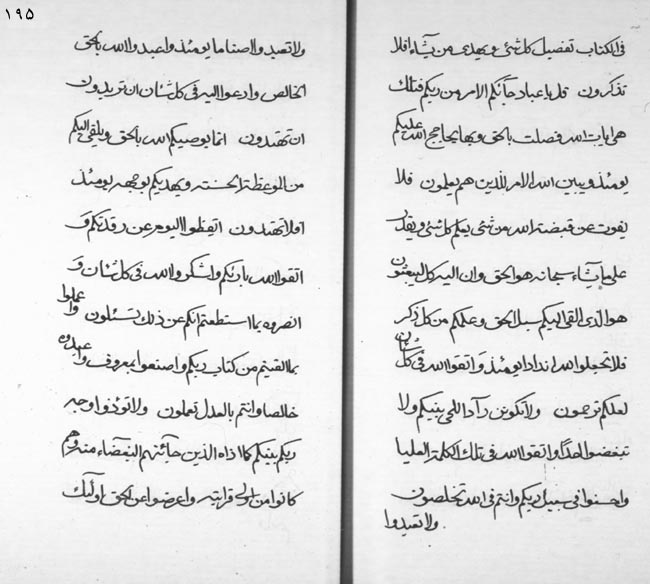 ١٩٥
فى الكتاب تفصيل كل شئ و يهدى من يشاء افلا
تذكرون قل يا عباد جائكم الامر من ربكم فتلك
هى ايات الله فصلت بالحق و بها يحاجج الله عليكم
يومئذ و يبين الله الامر للذين هم يعلمون فلا
يفوت عن قبضته الله من شئ يعلم كل شئ و يقدر
على ما يشاء سبحانه هو الحق و ان اليه كل يبعثون
هو الذى القى اليكم سبل الحق و علمكم من كل ذكر
فلا تجعلوا لله اندادا يومئذ و اتقوا الله فى كل شان
لعلكم ترحمون ولا تكونن رآد اللهى بينكم ولا
تبغضوا احدا و اتقوا الله فى تلك الكلمة العليا
و احسنوا فى سبيل ربكم و انتم فى الله تخلصون
ولا تعبدوا
ولا تعبدوا اصناما يومئذ و اعبدوا الله بالحق
الخالص و ادعوا اليه فى كل شان ان تريدون
ان تهتدون انما يوصيكم الله بالحق و يلقى اليكم
من الموعظة الحسنة و يهديكم بوجهه يومئذ
افلا تهتدون اتقظوا اليوم عن رقدتكم و
اتقوا الله بارئكم و اشكروا الله فى كل شان و
انصروه بما استطعتم انكم عن ذلك تسئلون و اعملوا
بما القيتم من كتاب ربكم و اصنعوا بمعروف و اعبدوه
خالصا و انتم بالعدل تعملون ولا تؤذوا وجه
ربكم بينكم كما اذاه الذين جائتهم البغضاء منه و هم
كانوا من اولى قرابته و اعرضوا عن الحق اولئك